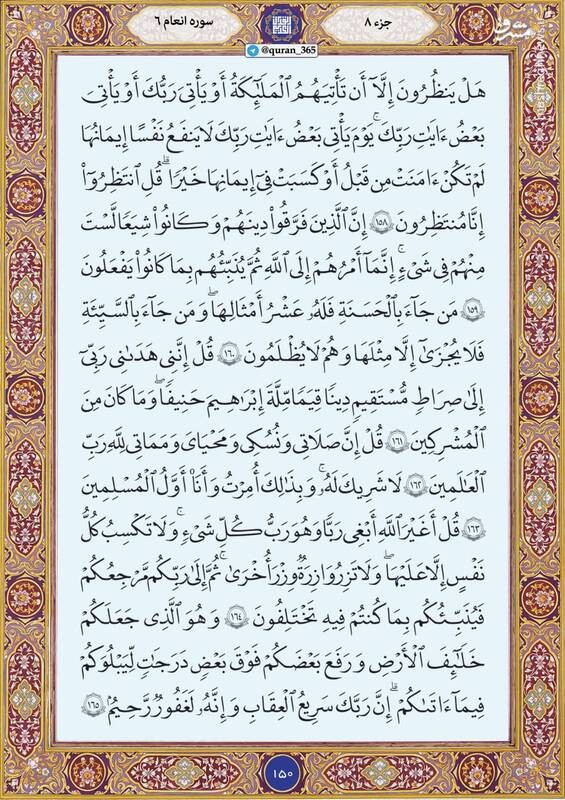 جزء ۸
سوره انعام ۶
@quran_365
هَلْ يَنظُرُونَ إِلَّآ أَن تَأْتِيَهُمُ ٱلْمَلَٰٓئِكَةُ أَوْ يَأْتِيَ رَبُّكَ أَوْ يَأْتِيَ
بَعْضُ ءَايَٰتِ رَبِّكَ ۗ يَوْمَ يَأْتِي بَعْضُ ءَايَٰتِ رَبِّكَ لَا يَنفَعُ نَفْسًا إِيمَٰنُهَا
لَمْ تَكُنْ ءَامَنَتْ مِن قَبْلُ أَوْ كَسَبَتْ فِىٓ إِيمَٰنِهَا خَيْرًا ۗ قُلِ ٱنتَظِرُوٓا۟
إِنَّا مُنتَظِرُونَ ۱۵۸ إِنَّ ٱلَّذِينَ فَرَّقُوا۟ دِينَهُمْ وَكَانُوا۟ شِيَعًا لَّسْتَ
مِنْهُمْ فِى شَىْءٍ ۚ إِنَّمَآ أَمْرُهُمْ إِلَى ٱللَّهِ ثُمَّ يُنَبِّئُهُم بِمَا كَانُوا۟ يَفْعَلُونَ
۱۵۹ مَن جَآءَ بِٱلْحَسَنَةِ فَلَهُۥ عَشْرُ أَمْثَالِهَا ۖ وَمَن جَآءَ بِٱلسَّيِّئَةِ
فَلَا يُجْزَىٰٓ إِلَّا مِثْلَهَا وَهُمْ لَا يُظْلَمُونَ ۱۶۰ قُلْ إِنَّنِى هَدَىٰنِى رَبِّىٓ
إِلَىٰ صِرَٰطٍ مُّسْتَقِيمٍ دِينًا قِيَمًا مِّلَّةَ إِبْرَٰهِيمَ حَنِيفًا ۚ وَمَا كَانَ مِنَ
ٱلْمُشْرِكِينَ ۱۶۱ قُلْ إِنَّ صَلَاتِى وَنُسُكِى وَمَحْيَاىَ وَمَمَاتِى لِلَّهِ رَبِّ
ٱلْعَٰلَمِينَ ۱۶۲ لَا شَرِيكَ لَهُۥ ۖ وَبِذَٰلِكَ أُمِرْتُ وَأَنَا۠ أَوَّلُ ٱلْمُسْلِمِينَ
۱۶۳ قُلْ أَغَيْرَ ٱللَّهِ أَبْغِى رَبًّا وَهُوَ رَبُّ كُلِّ شَىْءٍ ۚ وَلَا تَكْسِبُ كُلُّ
نَفْسٍ إِلَّا عَلَيْهَا ۚ وَلَا تَزِرُ وَازِرَةٌ وِزْرَ أُخْرَىٰ ۚ ثُمَّ إِلَىٰ رَبِّكُم مَّرْجِعُكُمْ
فَيُنَبِّئُكُم بِمَا كُنتُمْ فِيهِ تَخْتَلِفُونَ ۱۶۴ وَهُوَ ٱلَّذِى جَعَلَكُمْ
خَلَٰٓئِفَ ٱلْأَرْضِ وَرَفَعَ بَعْضَكُمْ فَوْقَ بَعْضٍ دَرَجَٰتٍ لِّيَبْلُوَكُمْ
فِى مَآ ءَاتَىٰكُمْ ۗ إِنَّ رَبَّكَ سَرِيعُ ٱلْعِقَابِ وَإِنَّهُۥ لَغَفُورٌ رَّحِيمٌۢ ۱۶۵
۱۵۰